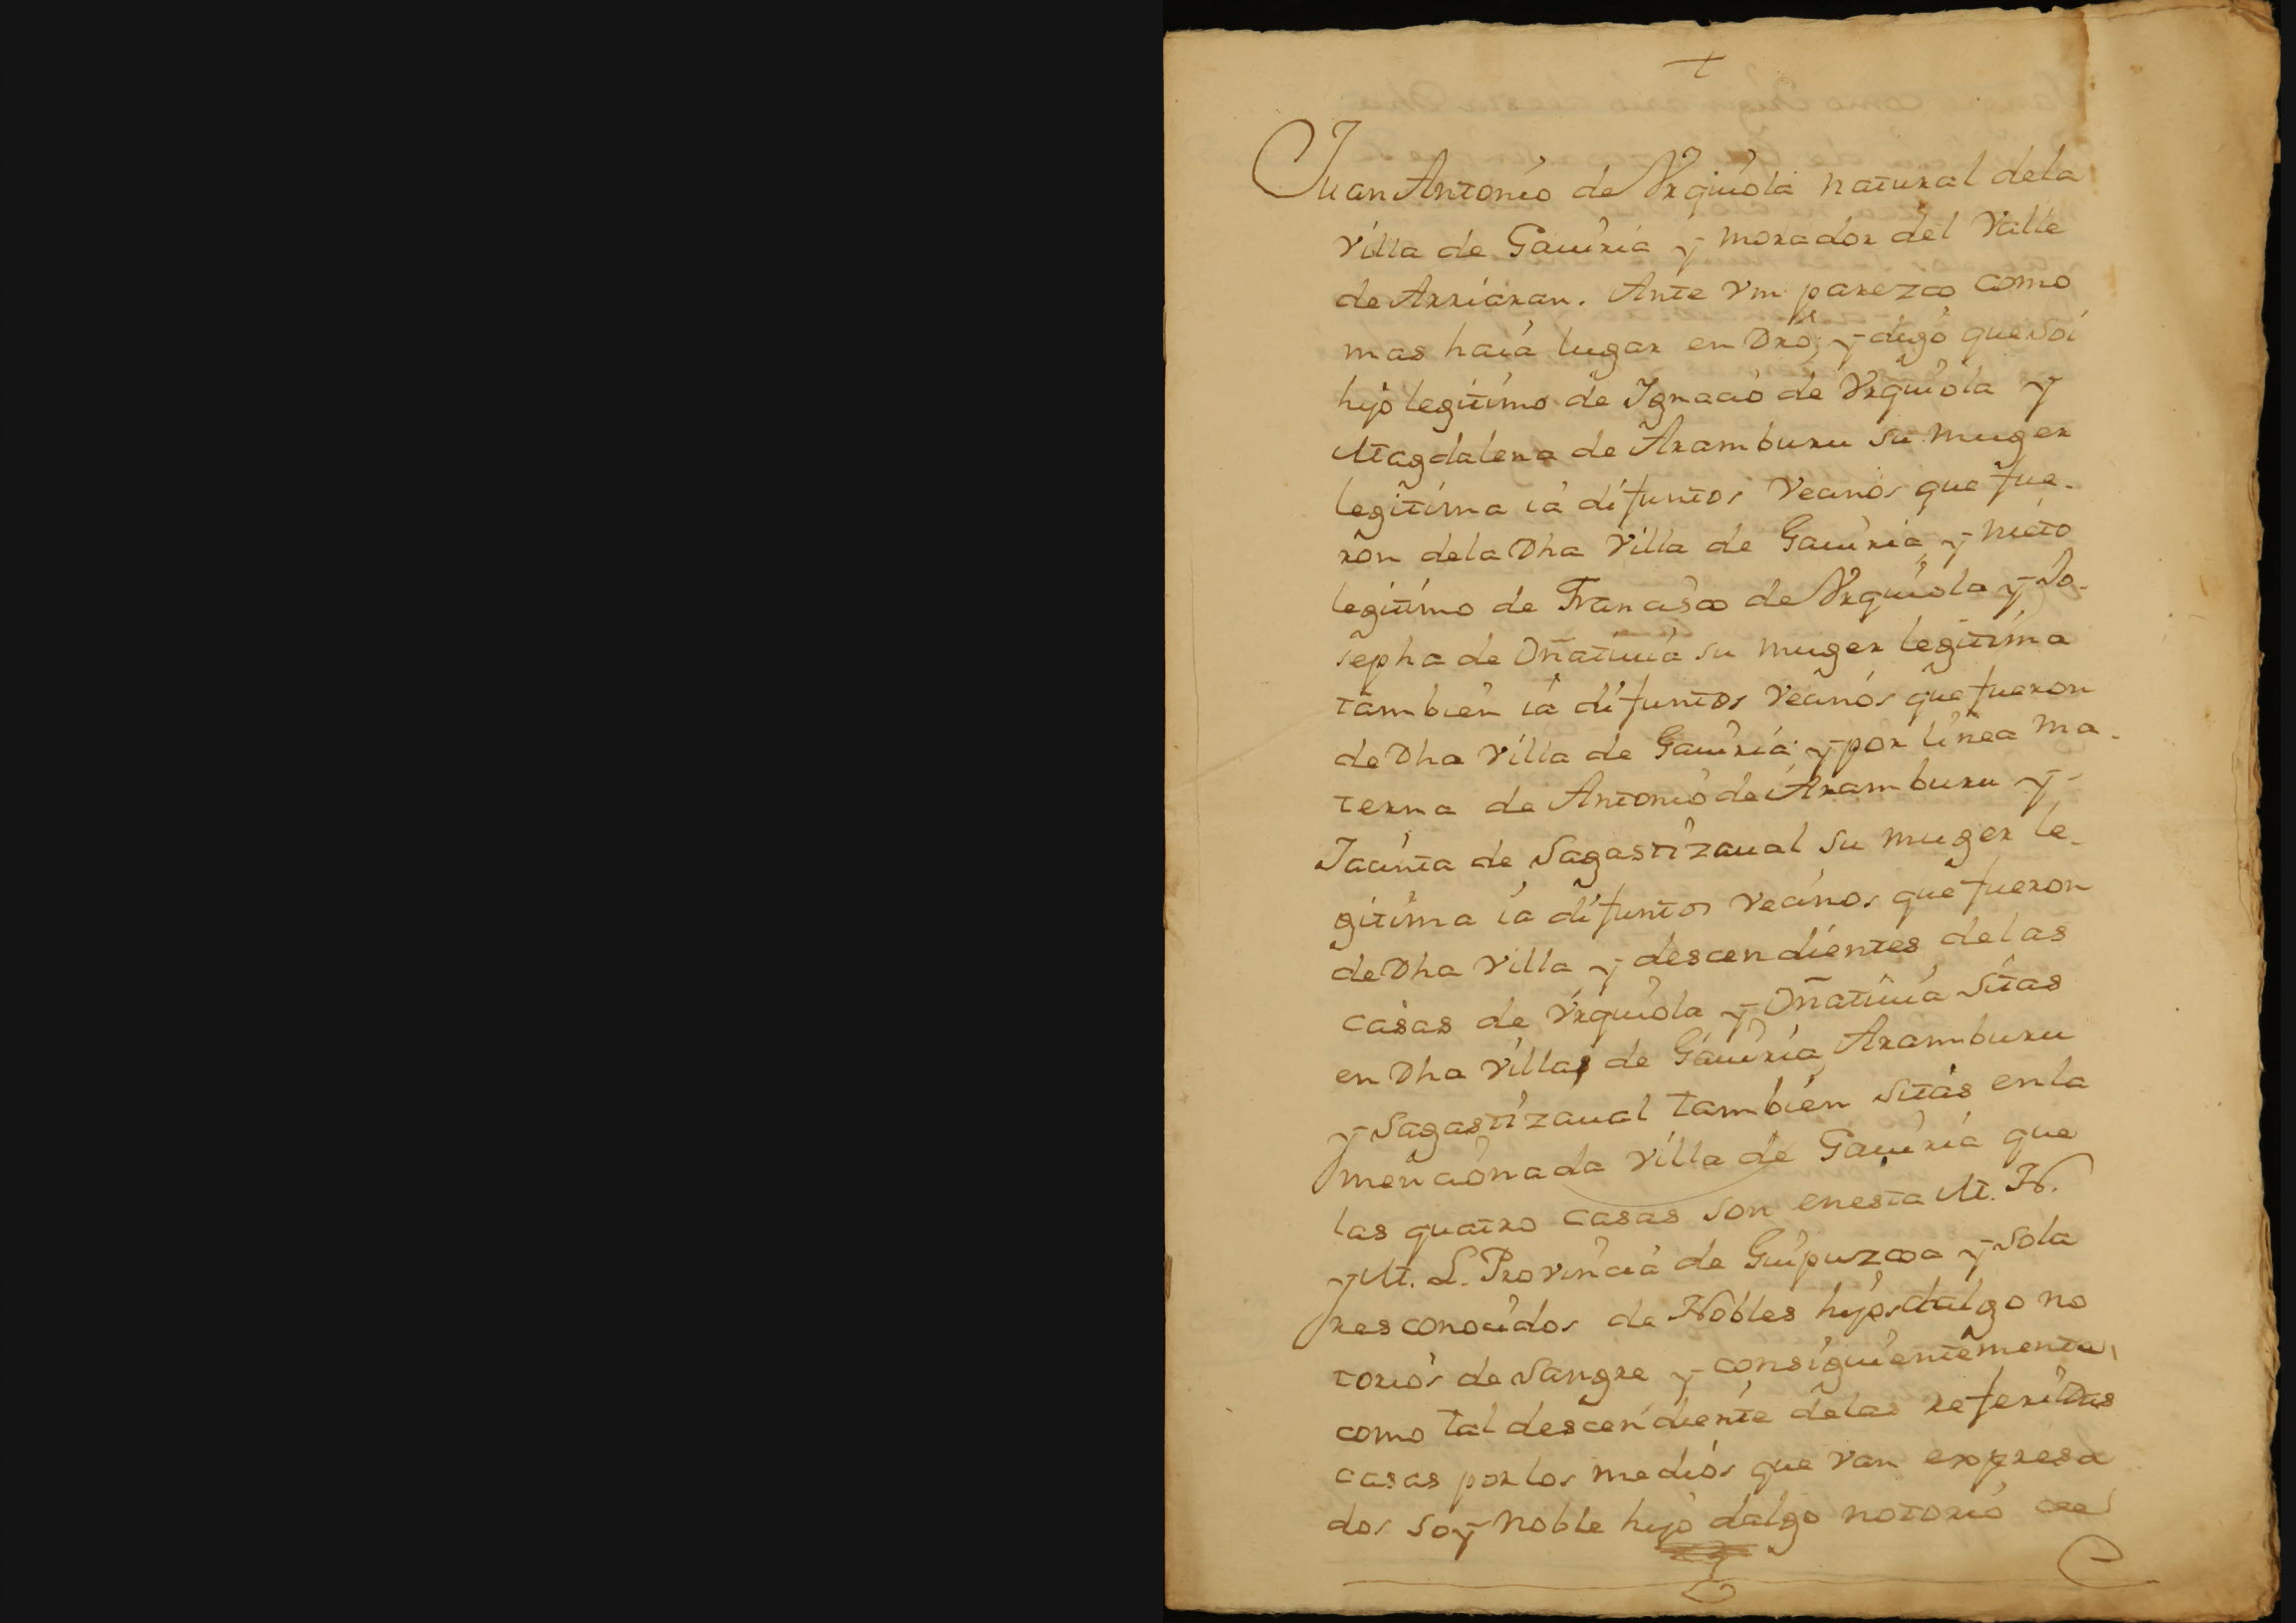 +
Juan Antonio de Vrquiola natural dela
villa de Gauiria y morador del Valle
de Arriaran. Ante Vm parezco como
mas haia lugar en Dro, y digo que soi
hijo legitimo de Ignacio de Vrquiola y
Magdalena de Aramburu su muger
legitima ia difuntos vecinos que fue-
ron dela Dha Villa de Gauiria, y nieto
legitimo de Francisco de Vrquiola y Jo-
sepha de Oñatiuia su muger legitima
tambien ia difuntos vecinos que fueron
de Dha villa de Gauiria; y por linea ma-
terna de Antonio de Aramburu y
Jacinta de Sagastizaual su muger le-
gitima ia difuntos vecinos que fueron
de Dha villa y descendientes delas
casas de Vrquiola y Oñatiuia sitas
en Dha villa de Gauiria, Aramburu
y Sagastizaual tambien sitas en la
mencionada villa de Gauiria que
las quatro casas son en esta M. N.
y M. L. Provincia de Guipuzcoa y sola
res conocidos de Nobles hijosdalgo no
torios de sangre y consiguientemente,
como tal descendiente delas referidas
casas por los medios que van expresa
dos soy noble hijo dalgo notorio de